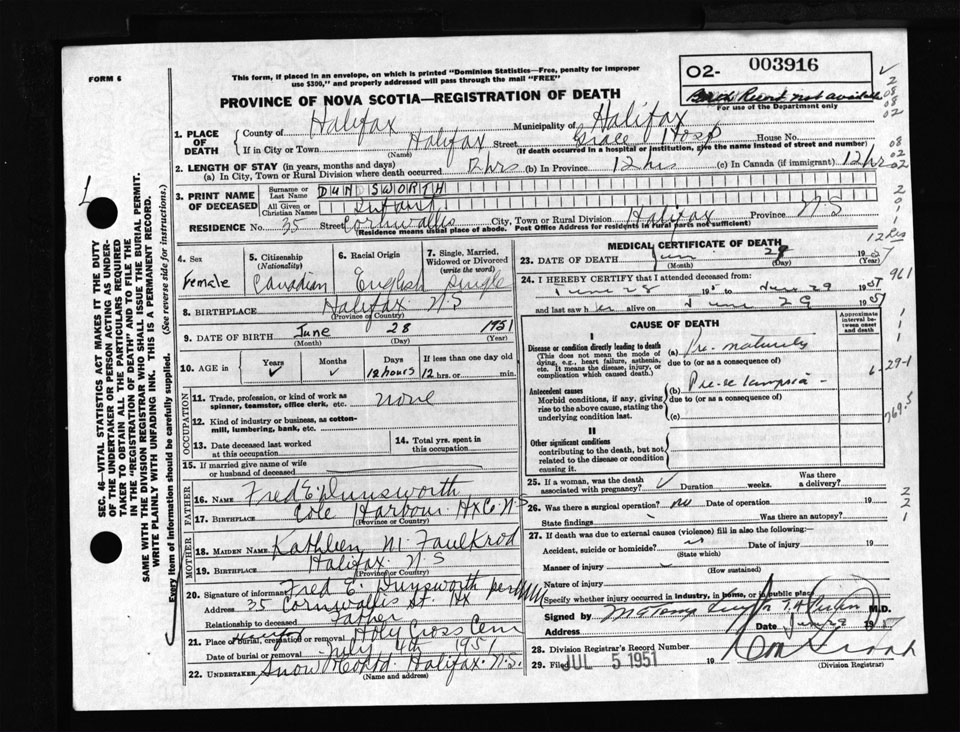 FORM 6
This form, if placed in an envelope, on which is printed "Dominion Statistics—Free, penalty for improper
use $300," and properly addressed will pass through the mail "FREE"
O2- 003916
Birth Record not available
For use of the Department only
PROVINCE OF NOVA SCOTIA—REGISTRATION OF DEATH
1. PLACE OF DEATH { County of Halifax Municipality of Halifax
If in City or Town Halifax Street Grace Hosp House No.
(Name) (If death occurred in a hospital or institution, give the name instead of street and number)
2. LENGTH OF STAY (in years, months and days)
(a) In City, Town or Rural Division where death occurred 12 hrs (b) In Province 12 hrs (c) In Canada (if immigrant) 12 hr
3. PRINT NAME OF DECEASED { Surname or Last Name DUNSWORTH
All Given or Christian Names Infant
RESIDENCE No. 35 Street Cornwallis City, Town or Rural Division Halifax Province NS
(Residence means usual place of abode. Post Office Address for residents in rural parts not sufficient)
4. Sex Female
5. Citizenship (Nationality) Canadian
6. Racial Origin English
7. Single, Married, Widowed or Divorced (write the word) Single
8. BIRTHPLACE Halifax N S
(Province or Country)
9. DATE OF BIRTH June 28 1951
(Month) (Day) (Year)
10. AGE in { Years Months Days 12 hours If less than one day old 12 hrs. or min.
OCCUPATION
11. Trade, profession, or kind of work as spinner, teamster, office clerk, etc. none
12. Kind of industry or business, as cotton-mill, lumbering, bank, etc.
13. Date deceased last worked at this occupation
14. Total yrs. spent in this occupation
15. If married give name of wife or husband of deceased
FATHER
16. NAME Fred E Dunsworth
17. BIRTHPLACE Cole Harbour Hx Co. N.S
(Province or Country)
MOTHER
18. MAIDEN NAME Kathleen M. Faulkrod
19. BIRTHPLACE Halifax N S
(Province or Country)
20. Signature of informant Fred E. Dunsworth per
Address 35 Cornwallis St. Hx
Relationship to deceased Father
21. Place of burial, cremation or removal Holy Cross Cem
Date of burial or removal July 4th 1951
22. UNDERTAKER Snow Halifax. N.S.
(Name and address)
MEDICAL CERTIFICATE OF DEATH
23. DATE OF DEATH June 29 1951
(Month) (Day) (Year)
24. I HEREBY CERTIFY that I attended deceased from:
June 28 1951 to June 29 1951
and last saw her alive on June 29 1951
CAUSE OF DEATH
Approximate interval between onset and death
I
Disease or condition directly leading to death (This does not mean the mode of dying, e.g., heart failure, asthenia, etc. It means the disease, injury, or complication which caused death.)
(a) Pre-maturity
due to (or as a consequence of)
Antecedent causes
Morbid conditions, if any, giving rise to the above cause, stating the underlying condition last.
(b) Pre-eclampsia
due to (or as a consequence of)
(c)
II
Other significant conditions contributing to the death, but not related to the disease or condition causing it.
25. If a woman, was the death associated with pregnancy? Duration weeks. Was there a delivery?
26. Was there a surgical operation? no Date of operation 19
State findings Was there an autopsy?
27. If death was due to external causes (violence) fill in also the following:—
Accident, suicide or homicide? Date of injury 19
(State which)
Manner of injury
(How sustained)
Nature of injury
Specify whether injury occurred in industry, in home, or in public place
Signed by M.D.
Address Date June 1951
28. Division Registrar's Record Number
29. Filed JUL 5 1951 19
(Division Registrar)
SEC. 46—VITAL STATISTICS ACT MAKES IT THE DUTY
OF THE UNDERTAKER OR PERSON ACTING AS UNDER-
TAKER TO OBTAIN ALL THE PARTICULARS REQUIRED
IN THE "REGISTRATION OF DEATH" AND TO FILE THE
SAME WITH THE DIVISION REGISTRAR WHO SHALL ISSUE THE BURIAL PERMIT.
WRITE PLAINLY WITH UNFADING INK. THIS IS A PERMANENT RECORD.
Every item of information should be carefully supplied. (See reverse side for instructions.)
2
08
02
08
02
02
2
0
1
1
12 Hrs
961
1
1
1
6-29-1
769.5
2
2
1